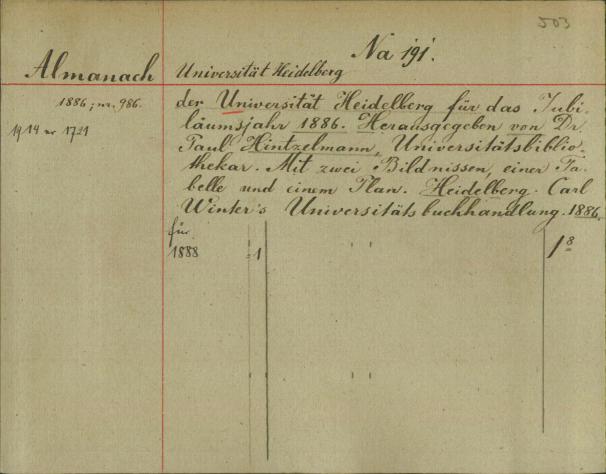 503
Na 191.
Almanach Universität Heidelberg
1886; nr. 986.
1914 nr 1721
der Universität Heidelberg für das Jubi-
läumsjahr 1886. Herausgegeben von Dr.
Paul Hintzelmann, Universitätsbiblio-
thekar. Mit zwei Bildnissen, einer Ta-
belle und einem Plan. Heidelberg. Carl
Winter's Universitätsbuchhandlung. 1886.
für
1888 1 1 8